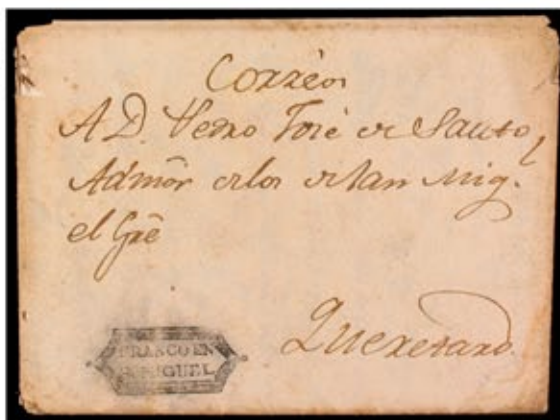 Corréos
A D. Pedro José de Sauto
Admōr de los de San Mig.l
el Grē
Queretaro.
FRANCO EN
S. MIGUEL